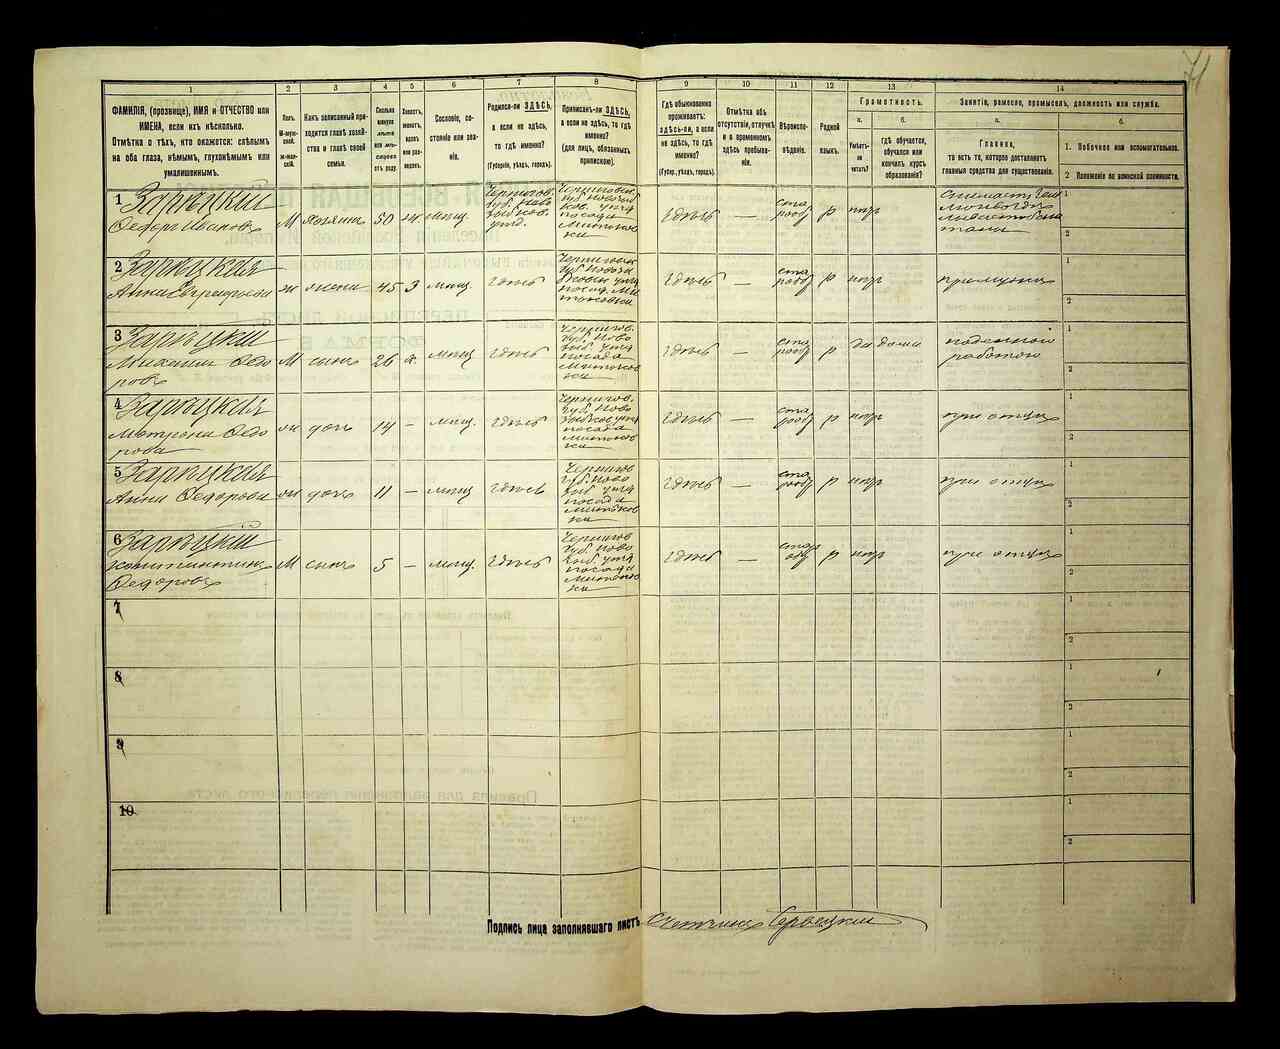 1
2
3
4
5
6
7
8
9
10
11
12
13
14
ФАМИЛІЯ, (прозвище), ИМЯ и ОТЧЕСТВО или
ИМЕНА, если ихъ нѣсколько.
Отмѣтка о тѣхъ, кто окажется: слѣпымъ
на оба глаза, нѣмымъ, глухонѣмымъ или
умалишеннымъ.
Полъ.
М-муж-
ской.
Ж-жен-
скій.
Какъ записанный при-
ходится главѣ хозяй-
ства и главѣ своей
семьи.
Сколько
минуло
лѣтъ
или мѣ-
сяцевъ
отъ роду.
Холостъ,
женатъ,
вдовъ
или раз-
веденъ.
Сословіе, со-
стояніе или зва-
ніе.
Родился-ли ЗДѢСЬ,
а если не здѣсь,
то гдѣ именно?
(Губернія, уѣздъ, городъ).
Приписанъ-ли ЗДѢСЬ,
а если не здѣсь, то гдѣ
именно?
(для лицъ, обязанныхъ
припискою).
Гдѣ обыкновенно
проживаетъ:
здѣсь-ли, а если
не здѣсь, то гдѣ
именно?
(Губер., уѣздъ, городъ).
Отмѣтка объ
отсутствіи, отлучкѣ
и о временномъ
здѣсь пребыва-
ніи.
Вѣроиспо-
вѣданіе.
Родной
языкъ.
Грамотность.
а.
б.
Умѣетъ-
ли
читать?
гдѣ обучается,
обучался или
кончилъ курсъ
образованія?
Занятіе, ремесло, промыселъ, должность или служба.
а.
б.
Главное,
то есть то, которое доставляетъ
главныя средства для существованія.
1. Побочное или вспомогательное.
2 Положеніе по воинской повинности.
1
Зарѣцкій
Федоръ Ивановъ
М
хозяинъ
50
мѣщ.
Чернигов.
губ. Ново
зыбков.
уѣзд.
Чернигов.
губ. Новозыб
ков. уѣзд
посада
Митьков
ки
здѣсь
—
ста
рообр
р
нѣтъ
1
2
2
Зарѣцкая
Анна
ж
жена
45
3
мѣщ.
здѣсь
Чернигов
губ Новозы
бков. уѣзд
посад. Ми
тьковки
здѣсь
—
ста
рообр
р
нѣтъ
при мужѣ
1
2
3
Зарѣцкій
Михаилъ Федо
ровъ
М
сынъ
26
х.
мѣщ
здѣсь
Чернигов.
губ. Ново
зыб. уѣзд
посада
Митьков
ки
здѣсь
—
ста
рообр
р
да дома
поденной
работою
1
2
4
Зарѣцкая
Матрена Федо
рова
ж
дочь
14
—
мѣщ.
здѣсь
Чернигов.
губ. Ново
зыбков. уѣзд
посада
Митьков
ки
здѣсь
—
ста
рообр
р
нѣтъ
при отцѣ
1
2
5
Зарѣцкая
Анна Федорова
ж
дочь
11
—
мѣщ
здѣсь
Чернигов
губ. Ново
зыб уѣзд
посада
Митьков
ки
здѣсь
—
ста
рообр
р
нѣтъ
при отцѣ
1
2
6
Зарѣцкій
Константинъ
Федоровъ
М
сынъ
5
—
мѣщ.
здѣсь
Чернигов
губ. Ново
зыб. уѣзд
посада
Митьков
ки
здѣсь
—
старо
обр
р
нѣтъ
при отцѣ
1
2
7
1
2
8
1
2
9
1
2
10
1
2
Подпись лица заполнявшаго листъ
Счетчикъ